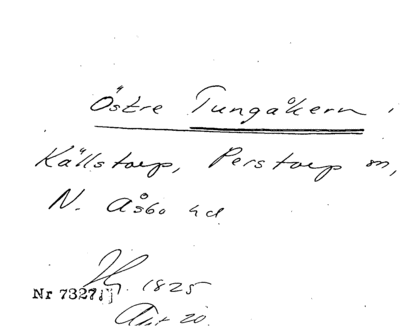 Östre Tungåkern i
Källstorp, Perstorp sn,
N. Åsbo hd
1825
Nr 7327
Akt 20.